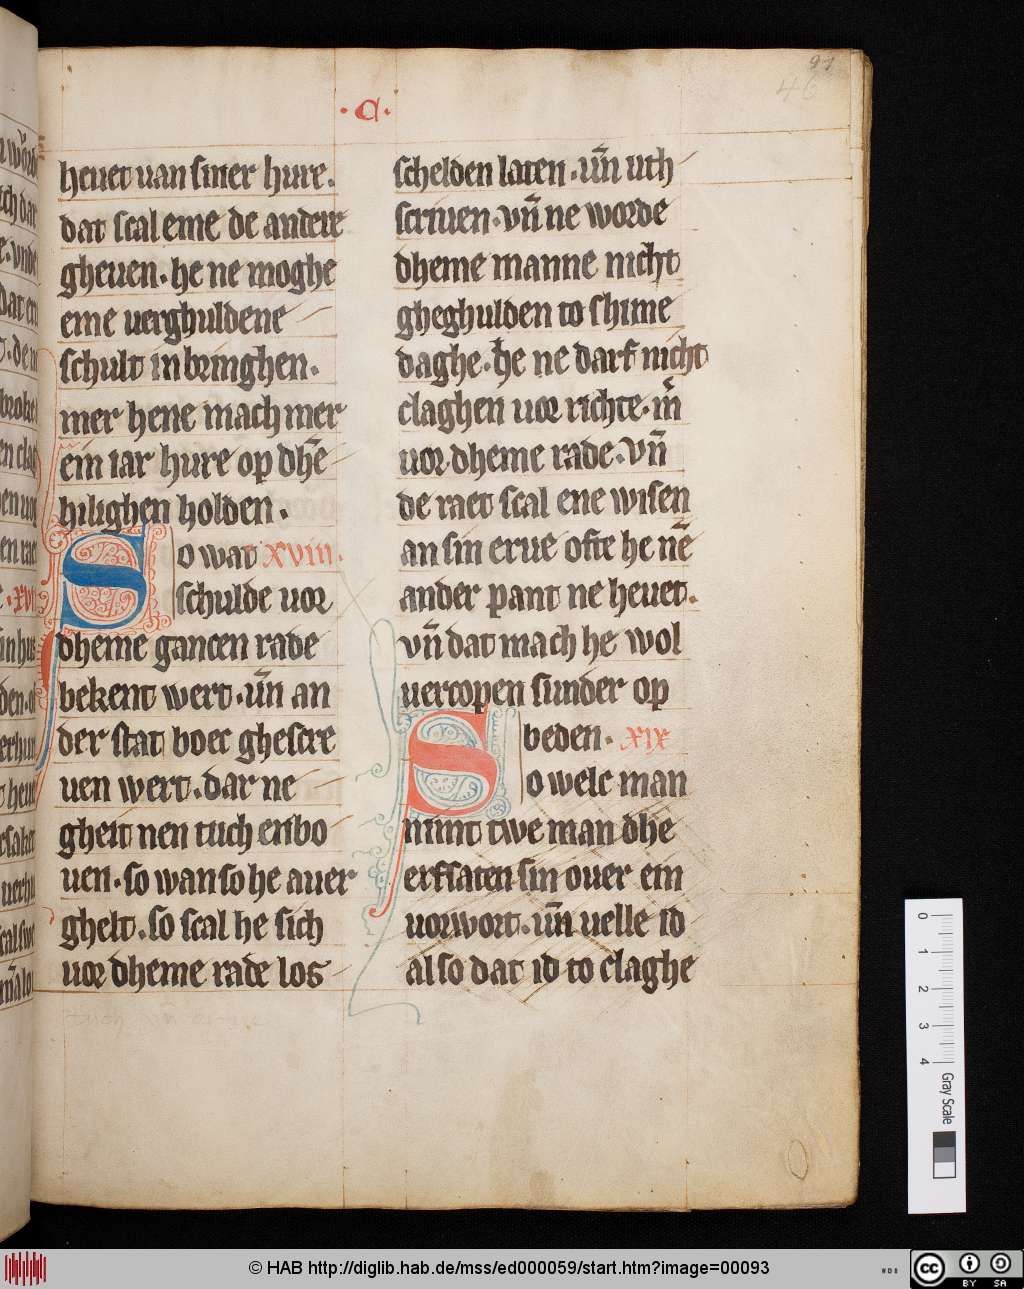 97
46
·C·
heuet uan siner hure.
dat scal eme de andere
gheuen. he ne moghe
eme uerghuldene
schult inbringhen.
mer hene mach mer
em iar hure op dhe̅
hilighen holden.
So wat XVIII.
schulde uor
dheme gancen rade
bekent wert. un̅ an
der stat boec ghescre
uen wert. dar ne
gheit nen tuch enbo
uen. so wan so he auer
ghelt. so scal he sich
uor dheme rade los
schelden laten. un̅ uth
scriuen. vn̅ ne worde
dheme manne nicht
gheghulden to shime
daghe. he ne darf nicht
claghen uor richte. m̅
uor dheme rade. vn̅
de raet scal ene wisen
an sin erue ofte he ne̅
ander pant ne heuet.
vn̅ dat mach he wol
uercopen sunder op
beden. XIX
So welc man
nimt twe man dhe
erfsaten sin ouer ein
uorwort. un̅ uelle id
also dat id to claghe
0 1 2 3 4 Gray Scale
© HAB http://diglib.hab.de/mss/ed000059/start.htm?image=00093
WDB
cc BY SA